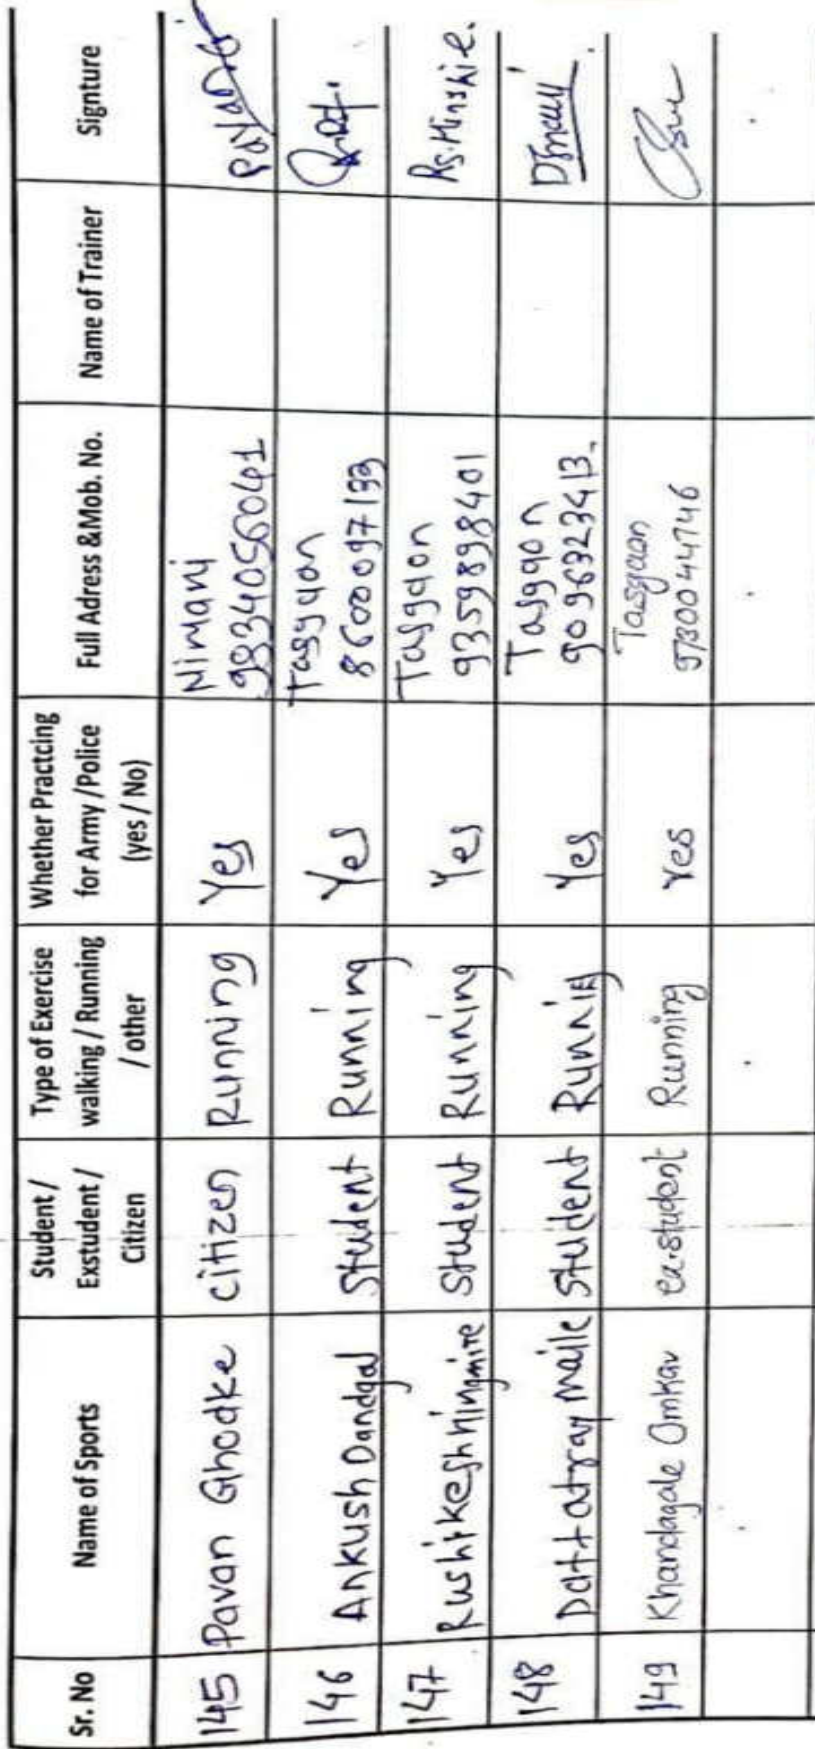 Sr. No Name of Sports Student / Exstudent / Citizen Type of Exercise walking / Running / other Whether Practcing for Army /Police (yes / No) Full Adress &Mob. No. Name of Trainer Signture
145 Pavan Ghodke citizen Running Yes Nimani
146 Ankush Dandgal Student Running Yes Tasgaon 8600097133
147 Rushikesh Student Running Yes Tasgaon 9359898401
148 Dattatray Student Running Yes Tasgaon 9096323413.
149 Khandagale Omkar ex.student Running Yes Tasgaon 9730044746